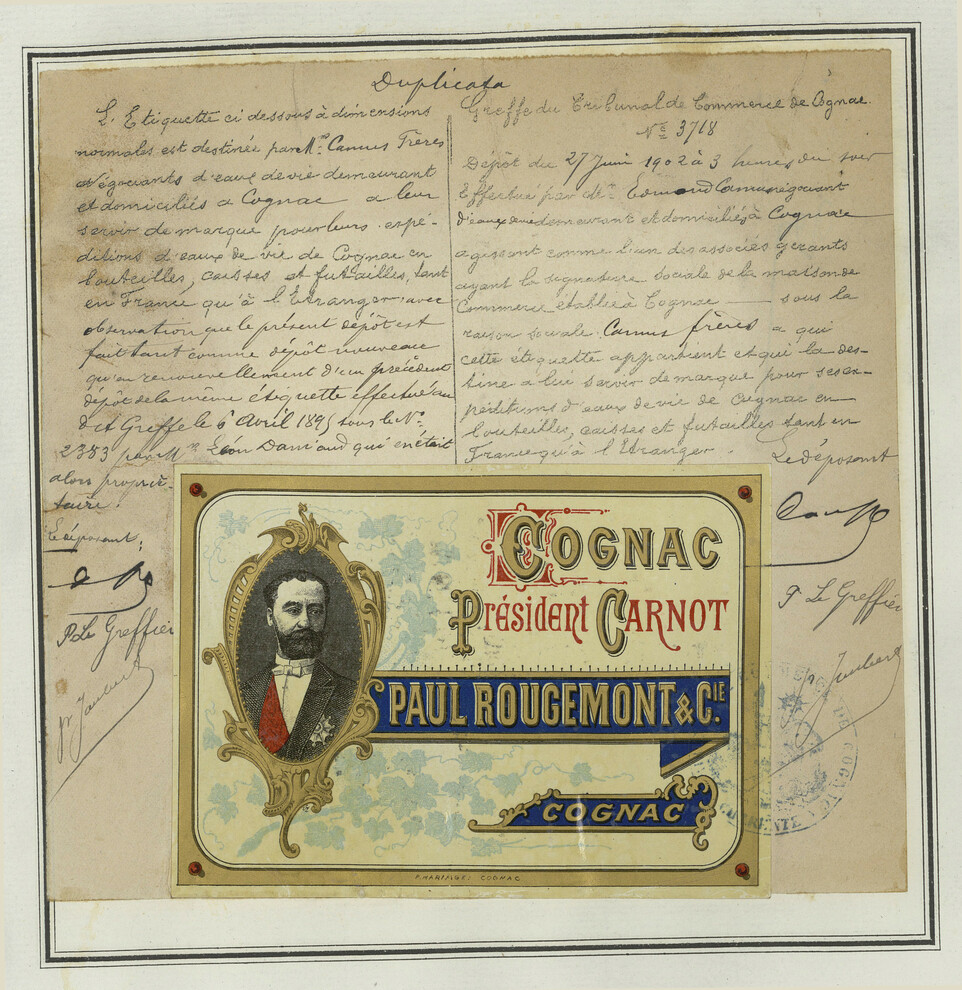 Duplicata
L'Etiquette ci dessous à dimensions
normales est destinée par Mrs Camus Frères
Négociants d'eaux de vie demeurant
et domiciliés à Cognac à leur
servir de marque pour leurs expé-
ditions d'eaux de vie de Cognac en
bouteilles, caisses et futailles, tant
en France qu'à l'Etranger; avec
observation que le présent dépôt est
fait tant comme dépôt nouveau
qu'en renouvellement d'un précédent
dépôt de la même étiquette effectué au
dit Greffe le 6 Avril 1895 sous le No
2353 par Mr Léon Damiaud qui en était
alors proprié-
taire.
Le déposant,
P. Le Greffier
Greffe du Tribunal de Commerce de Cognac.
No 3718
Dépôt du 27 Juin 1902 à 3 heures du soir
Effectué par Edmond Camus négociant
d'eaux de vie demeurant et domicilié à Cognac
agissant comme l'un des associés gérants
ayant la signature sociale de la maison de
Commerce établie à Cognac — sous la
raison sociale Camus frères à qui
cette étiquette appartient et qui la des-
tine à lui servir de marque pour ses ex-
péditions d'eaux de vie de Cognac en
bouteilles, caisses et futailles tant en
France qu'à l'Etranger.
Le déposant
P. Le Greffier
COGNAC
Président CARNOT
PAUL ROUGEMONT & CIE
COGNAC
COGNAC
DE COGNAC